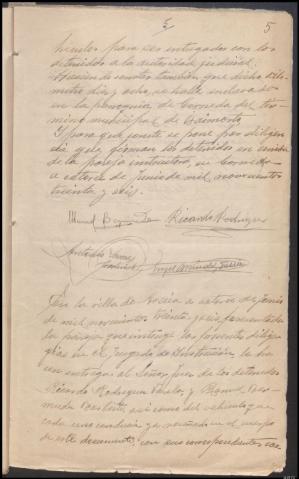 5 5
hículos para ser entregados con los
detenidos a la autoridad judicial.
Hacien do constar también que dicho kiló-
metro diez y ocho, se halla enclavado
en la parroquia de Corneda del tér-
mino municipal de Boimorto
Y para que conste se pone por diligen
cia que firman los detenidos en unión
de la pareja instructora, en Corneda
a catorce de junio de mil novecientos
treinta y seis.
Manuel Bermudez Ricardo Rodriguez
Antonio
En la villa de Arzúa a catorce de junio
de mil novecientos treinta y seis presentada
la pareja que instruye las presentes diligen
cias en el Juzgado de Instrucción le ha
cen entrega al Señor Juez de los detenidos
Ricardo Rodriguez Varela, y Manuel Ber-
mudez así como del vehiculo que
cada uno conducia ya reseñado en el cuerpo
de este documento, con sus correspondientes car